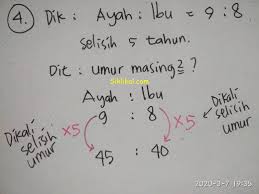 4. Dik : Ayah : Ibu = 9 : 8
selisih 5 tahun.
Dit : umur masing2 ?
Siklikal.com
Ayah : Ibu
9 : 8
Dikali selisih umur x5
x5 Dikali selisih umur
45 : 40
2020-3-7 19:35